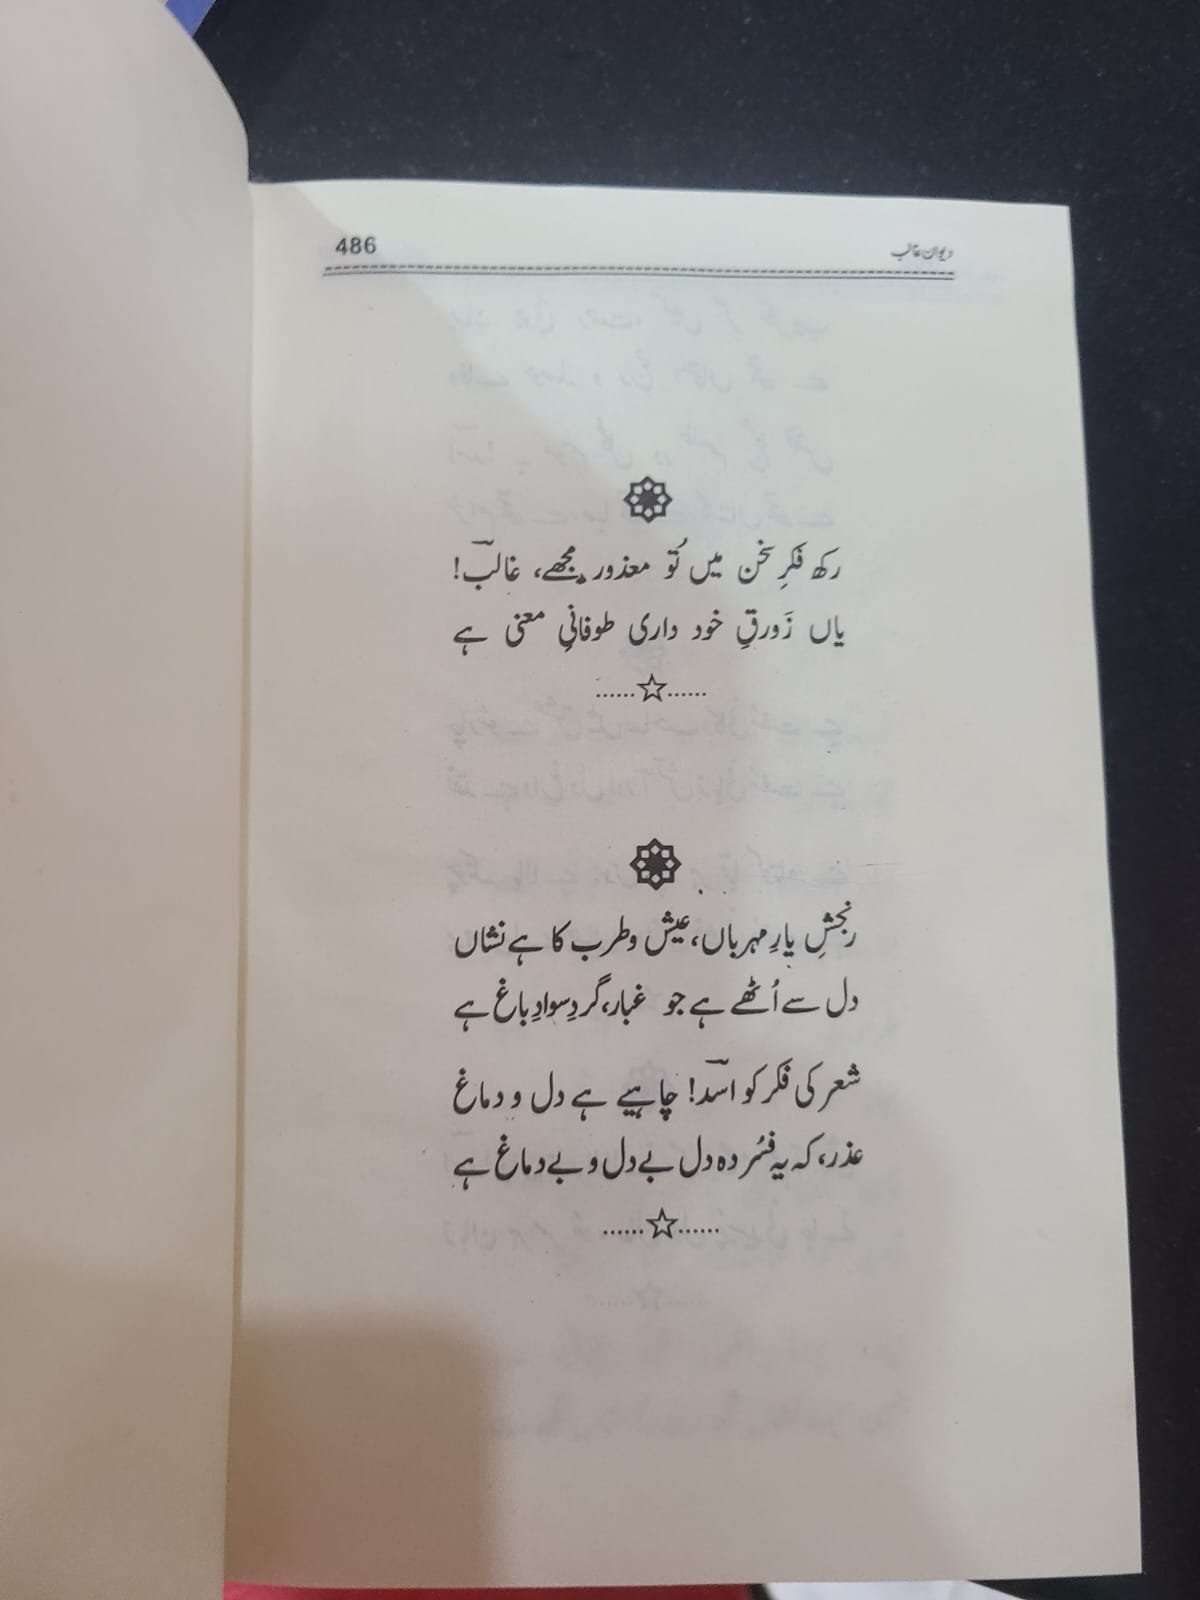 486
دیوان غالب
رکھ فکرِ سخن میں تُو معذور مجھے، غالبؔ!
یاں زَورقِ خود داری طوفانیِ معنی ہے
......☆......
رنجشِ یارِ مہرباں، عیش و طرب کا ہے نشاں
دل سے اُٹھے ہے جو غبار، گردِ سوادِ باغ ہے
شعر کی فکر کو اسدؔ! چاہیے ہے دل و دماغ
عذر، کہ یہ فسُردہ دل بے دل و بے دماغ ہے
......☆......